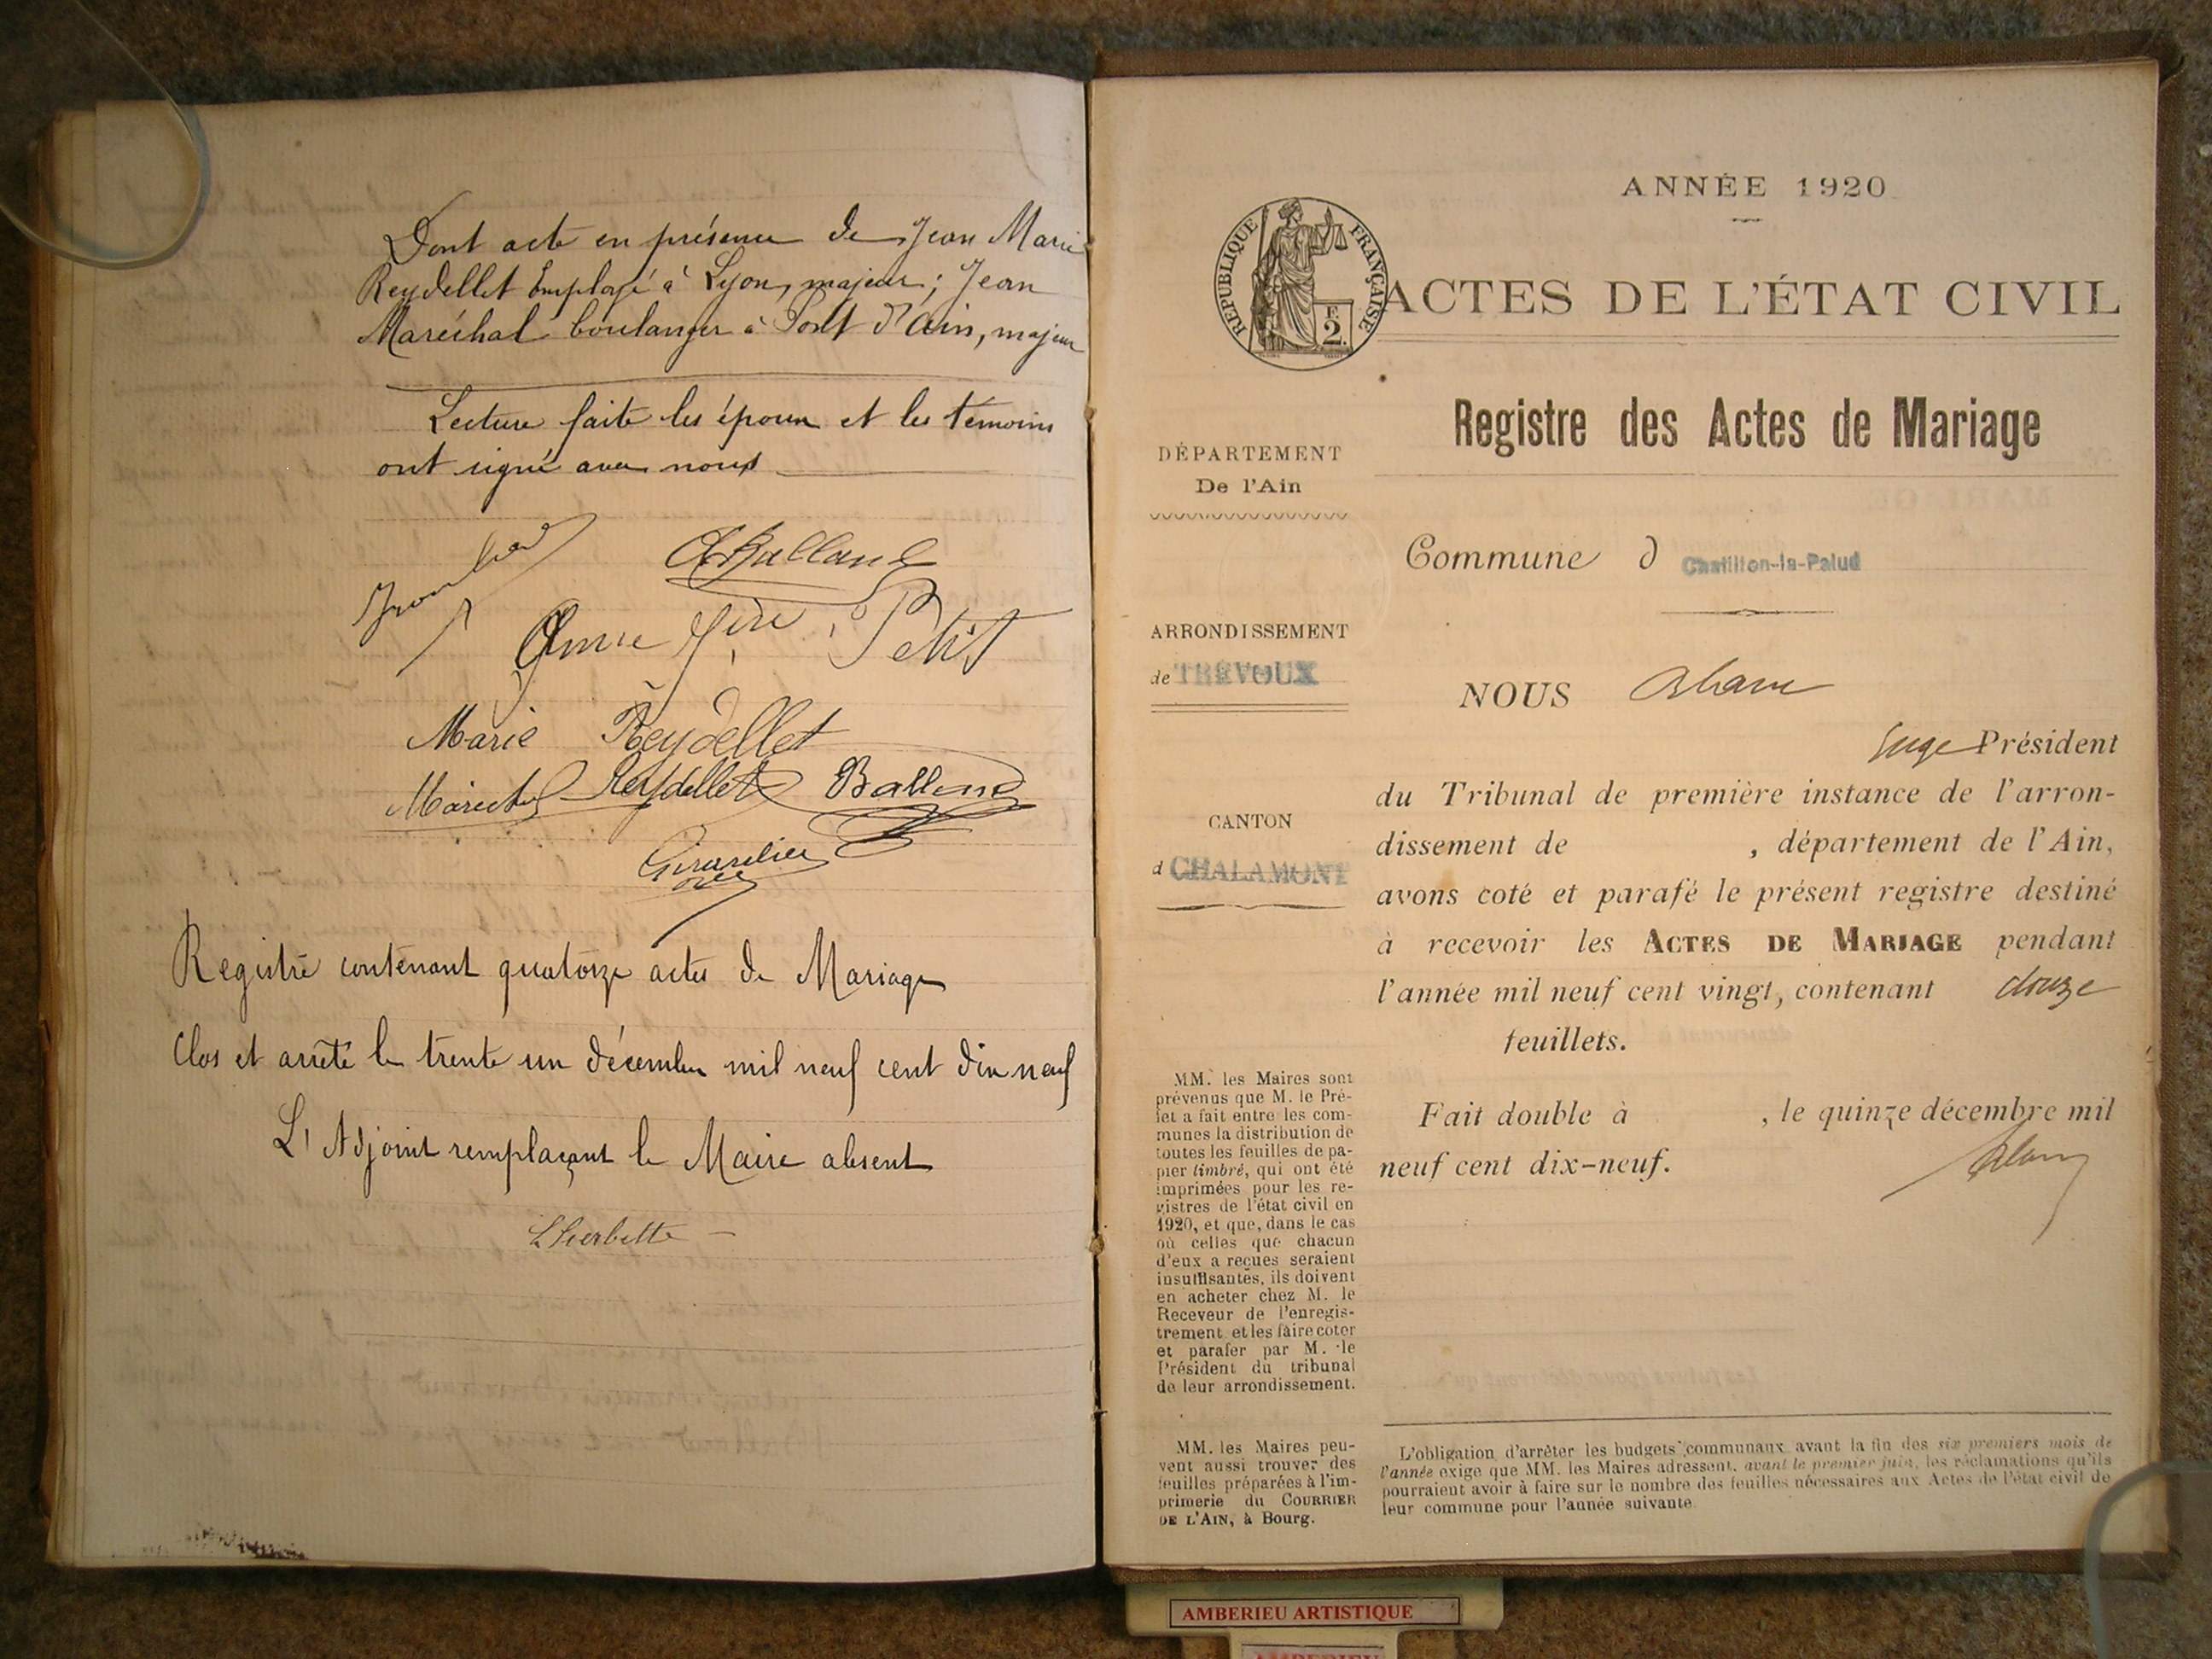 Dont acte en présence de Jean Marie
Reydellet Employé à Lyon, majeur; Jean
Maréchal boulanger à Pont d'Ain, majeur
Lecture faite les époux et les témoins
ont signé avec nous
Balland
Petit
Marie Reydellet
Marechal Reydellet Balland
Registre contenant quatorze actes de Mariage
Clos et arrêté le trente un décembre mil neuf cent dix neuf
L'Adjoint remplaçant le Maire absent
Lherbette
ANNÉE 1920
RÉPUBLIQUE FRANÇAISE
F. 2.
ACTES DE L'ÉTAT CIVIL
Registre des Actes de Mariage
DÉPARTEMENT
De l'Ain
Commune d Chatillon-la-Palud
ARRONDISSEMENT
de TRÉVOUX
NOUS
Juge Président
du Tribunal de première instance de l'arron-
dissement de , département de l'Ain,
avons coté et parafé le présent registre destiné
à recevoir les ACTES DE MARIAGE pendant
l'année mil neuf cent vingt, contenant douze
feuillets.
CANTON
d CHALAMONT
Fait double à , le quinze décembre mil
neuf cent dix-neuf.
MM. les Maires sont
prévenus que M. le Pré-
fet a fait entre les com-
munes la distribution de
toutes les feuilles de pa-
pier timbré, qui ont été
imprimées pour les re-
gistres de l'état civil en
1920, et que, dans le cas
où celles que chacun
d'eux a reçues seraient
insuffisantes, ils doivent
en acheter chez M. le
Receveur de l'enregis-
trement et les faire coter
et parafer par M. le
Président du tribunal
de leur arrondissement.
MM. les Maires peu-
vent aussi trouver des
feuilles préparées à l'im-
primerie du COURRIER
DE L'AIN, à Bourg.
L'obligation d'arrêter les budgets communaux avant la fin des six premiers mois de
l'année exige que MM. les Maires adressent, avant le premier juin, les réclamations qu'ils
pourraient avoir à faire sur le nombre des feuilles nécessaires aux Actes de l'état civil de
leur commune pour l'année suivante.
AMBERIEU ARTISTIQUE
AMBERIEU